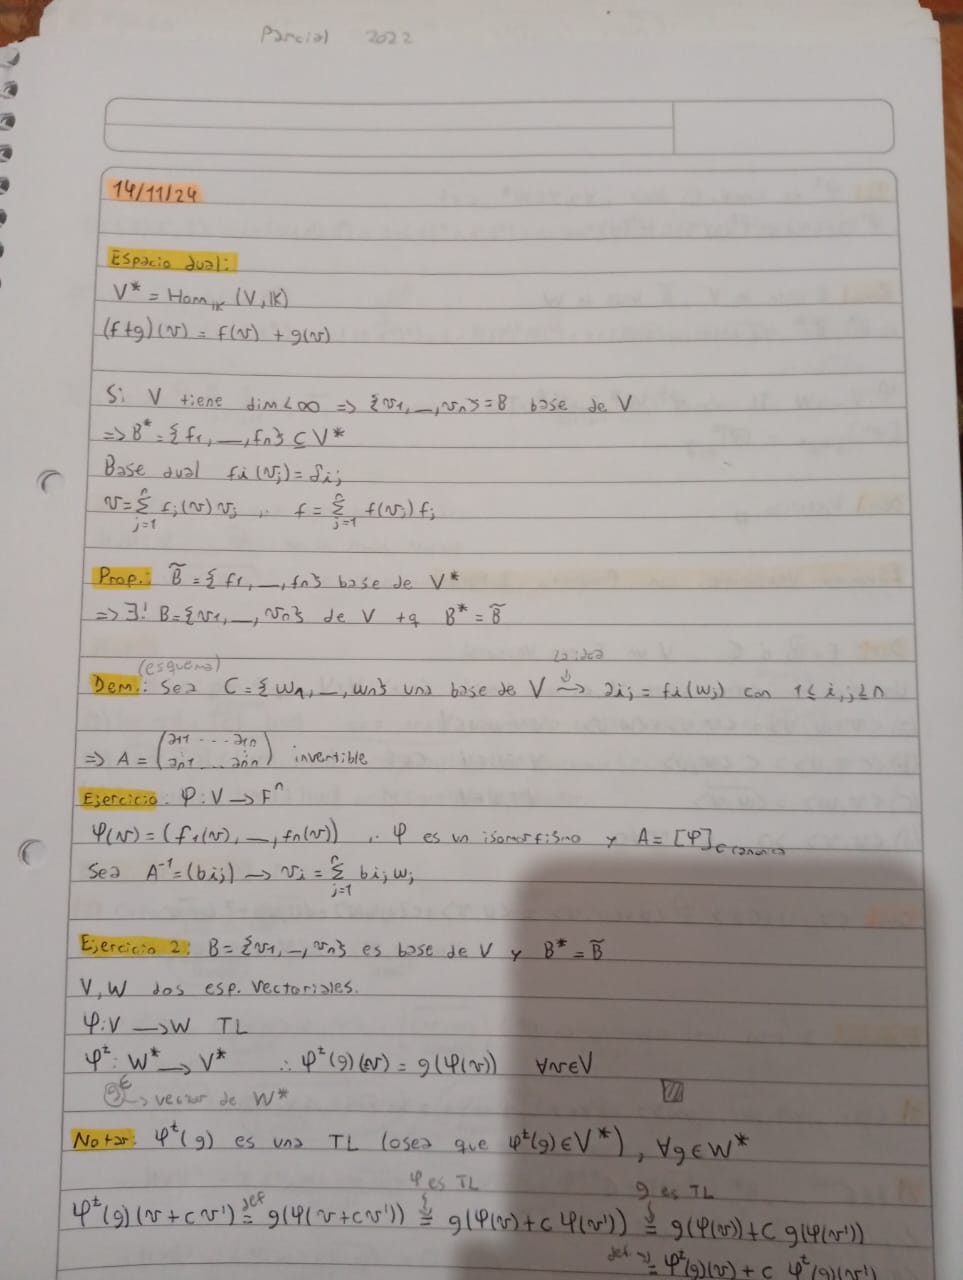 Parcial 2022
14/11/24
Espacio dual:
V* = Hom_IK (V, IK)
(f+g)(v) = f(v) + g(v)
Si V tiene dim<∞ => {v1, —, vn} = B base de V
=> B* = {f1, —, fn} ⊆ V*
Base dual fi(vj) = δij
v = Σ_{j=1}^{n} fj(v) vj ∴ f = Σ_{j=1}^{n} f(vj) fj
Prop.: B̃ = {f1, —, fn} base de V*
=> ∃! B={v1, —, vn} de V tq B* = B̃
(esquema) la idea
Dem.: Sea C = {w1, —, wn} una base de V → aij = fi(wj) con 1 ≤ i,j ≤ n
=> A = (a11 ... a1n
an1 ... ann) invertible
Ejercicio: φ: V → F^n
φ(v) = (f1(v), —, fn(v)) ∴ φ es un isomorfismo y A = [φ]_{C canonica}
Sea A^-1 = (bij) → vi = Σ_{j=1}^{n} bij wj
Ejercicio 2: B = {v1, —, vn} es base de V y B* = B̃
V, W dos esp. vectoriales.
φ: V → W TL
φ^t: W* → V* ∴ φ^t(g)(v) = g(φ(v)) ∀v∈V
g ↳ vector de W*
Notar: φ^t(g) es una TL (osea que φ^t(g) ∈ V*), ∀g ∈ W*
φ es TL g es TL
φ^t(g)(v + cv') =def g(φ(v + cv')) = g(φ(v) + c φ(v')) = g(φ(v)) + c g(φ(v'))
def → = φ^t(g)(v) + c φ^t(g)(v')